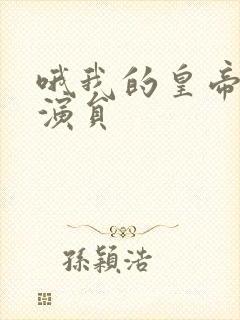 哦我的皇帝
演員
孫穎浩